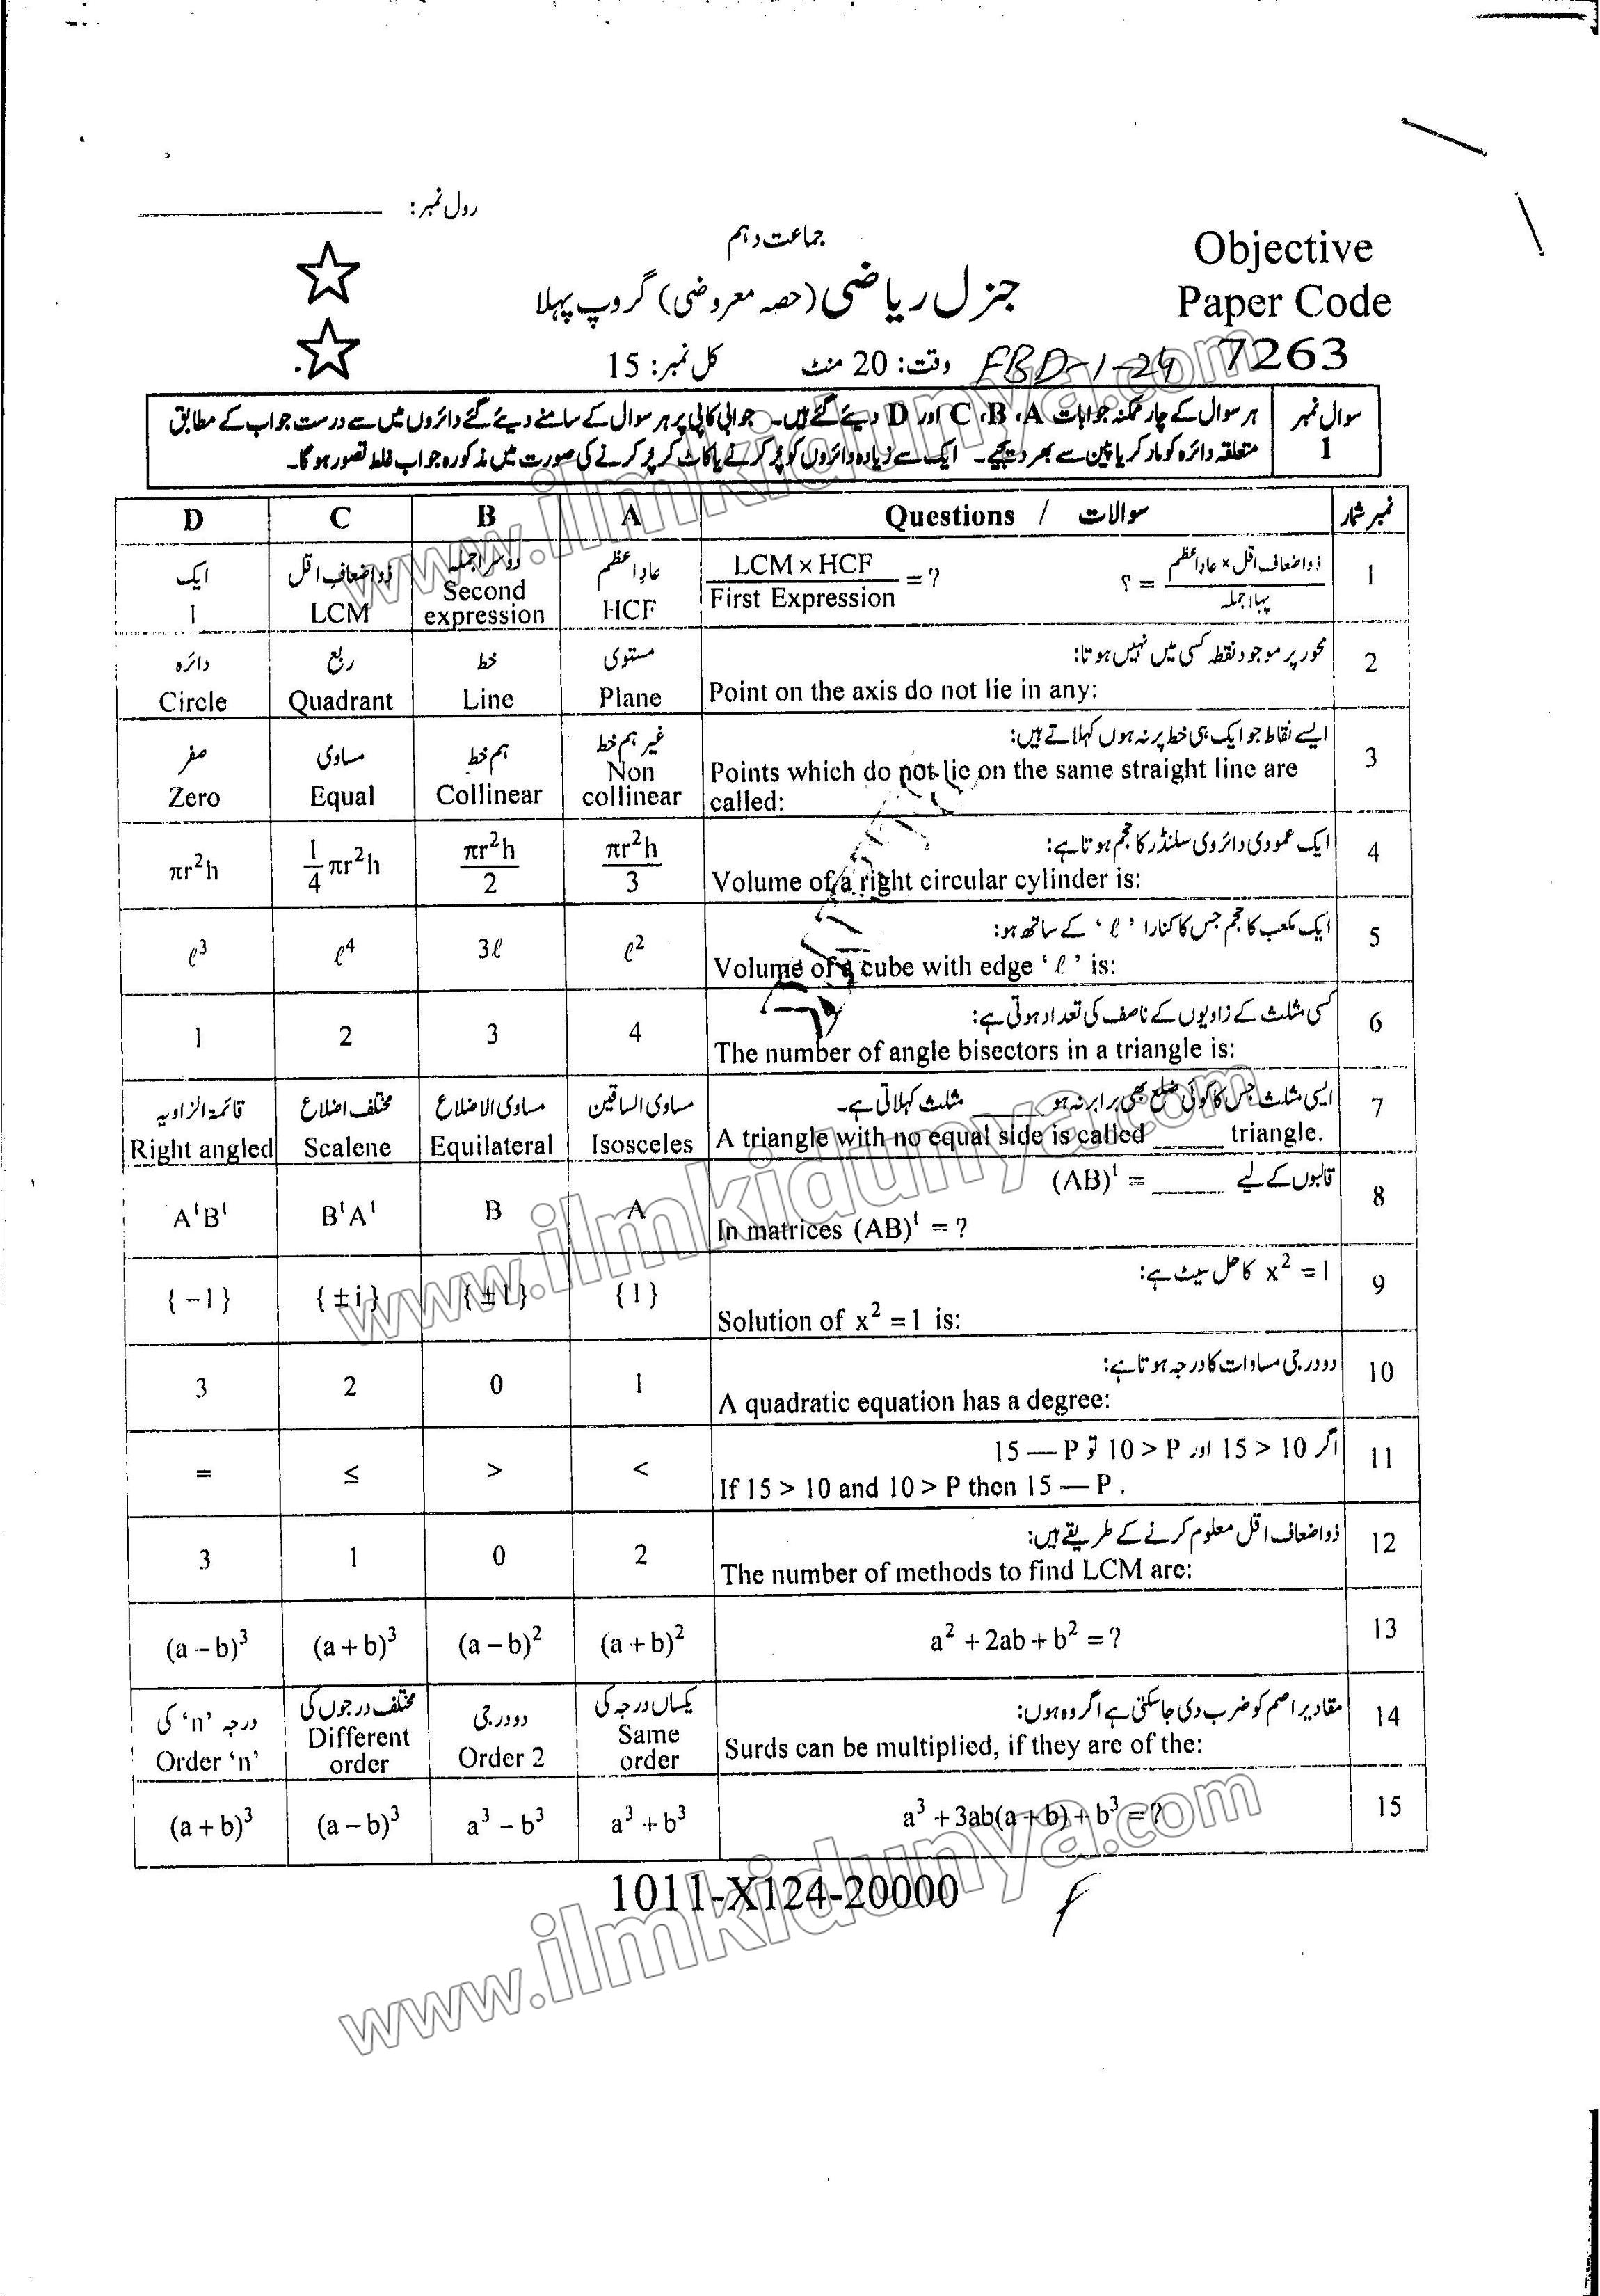 رول نمبر:
جماعت دہم
Objective
جنرل ریاضی (حصہ معروضی) گروپ پہلا
Paper Code
7263
FBD-1-24
وقت: 20 منٹ
کل نمبر: 15
سوال نمبر 1
ہر سوال کے چار ممکنہ جوابات A، B، C اور D دیئے گئے ہیں۔ جوابی کاپی پر ہر سوال کے سامنے دیئے گئے دائروں میں سے درست جواب کے مطابق
متعلقہ دائرہ کو مارکر یا پین سے بھر دیجیے۔ ایک سے زیادہ دائروں کو پُر کرنے یا کاٹ کر پُر کرنے کی صورت میں مذکورہ جواب غلط تصور ہو گا۔
نمبر شمار
سوالات / Questions
A
B
C
D
1
ذواضعاف اقل × عاداعظم / پہلا جملہ = ؟
LCM × HCF / First Expression = ?
عاداعظم
HCF
دوسرا جملہ
Second
expression
ذواضعاف اقل
LCM
ایک
1
2
محور پر موجود نقطہ کسی میں نہیں ہوتا:
Point on the axis do not lie in any:
مستوی
Plane
خط
Line
ربع
Quadrant
دائرہ
Circle
3
ایسے نقاط جو ایک ہی خط پر نہ ہوں کہلاتے ہیں:
Points which do not lie on the same straight line are
called:
غیر ہم خط
Non
collinear
ہم خط
Collinear
مساوی
Equal
صفر
Zero
4
ایک عمودی دائروی سلنڈر کا حجم ہوتا ہے:
Volume of a right circular cylinder is:
πr²h/3
πr²h/2
1/4 πr²h
πr²h
5
ایک مکعب کا حجم جس کا کنارا ’ℓ‘ کے ساتھ ہو:
Volume of a cube with edge ‘ℓ’ is:
ℓ²
3ℓ
ℓ⁴
ℓ³
6
کسی مثلث کے زاویوں کے ناصف کی تعداد ہوتی ہے:
The number of angle bisectors in a triangle is:
4
3
2
1
7
ایسی مثلث جس کا کوئی ضلع بھی برابر نہ ہو _____ مثلث کہلاتی ہے۔
A triangle with no equal side is called _____ triangle.
مساوی الساقین
Isosceles
مساوی الاضلاع
Equilateral
مختلف اضلاع
Scalene
قائمۃ الزاویہ
Right angled
8
قالبوں کے لیے _____ = (AB)ᵗ
In matrices (AB)ᵗ = ?
A
B
BᵗAᵗ
AᵗBᵗ
9
x² = 1 کا حل سیٹ ہے:
Solution of x² = 1 is:
{1}
{±1}
{±i}
{-1}
10
دو درجی مساوات کا درجہ ہوتا ہے:
A quadratic equation has a degree:
1
0
2
3
11
اگر 15 > 10 اور 10 > P تو 15 — P
If 15 > 10 and 10 > P then 15 — P .
<
>
≤
=
12
ذواضعاف اقل معلوم کرنے کے طریقے ہیں:
The number of methods to find LCM are:
2
0
1
3
13
a² + 2ab + b² = ?
(a + b)²
(a − b)²
(a + b)³
(a − b)³
14
مقادیر اصم کو ضرب دی جاسکتی ہے اگر وہ ہوں:
Surds can be multiplied, if they are of the:
یکساں درجہ کی
Same
order
دو درجی
Order 2
مختلف درجوں کی
Different
order
درجہ ’n‘ کی
Order ‘n’
15
a³ + 3ab(a + b) + b³ = ?
a³ + b³
a³ − b³
(a − b)³
(a + b)³
1011-X124-20000
www.ilmkidunya.com
www.ilmkidunya.com
www.ilmkidunya.com